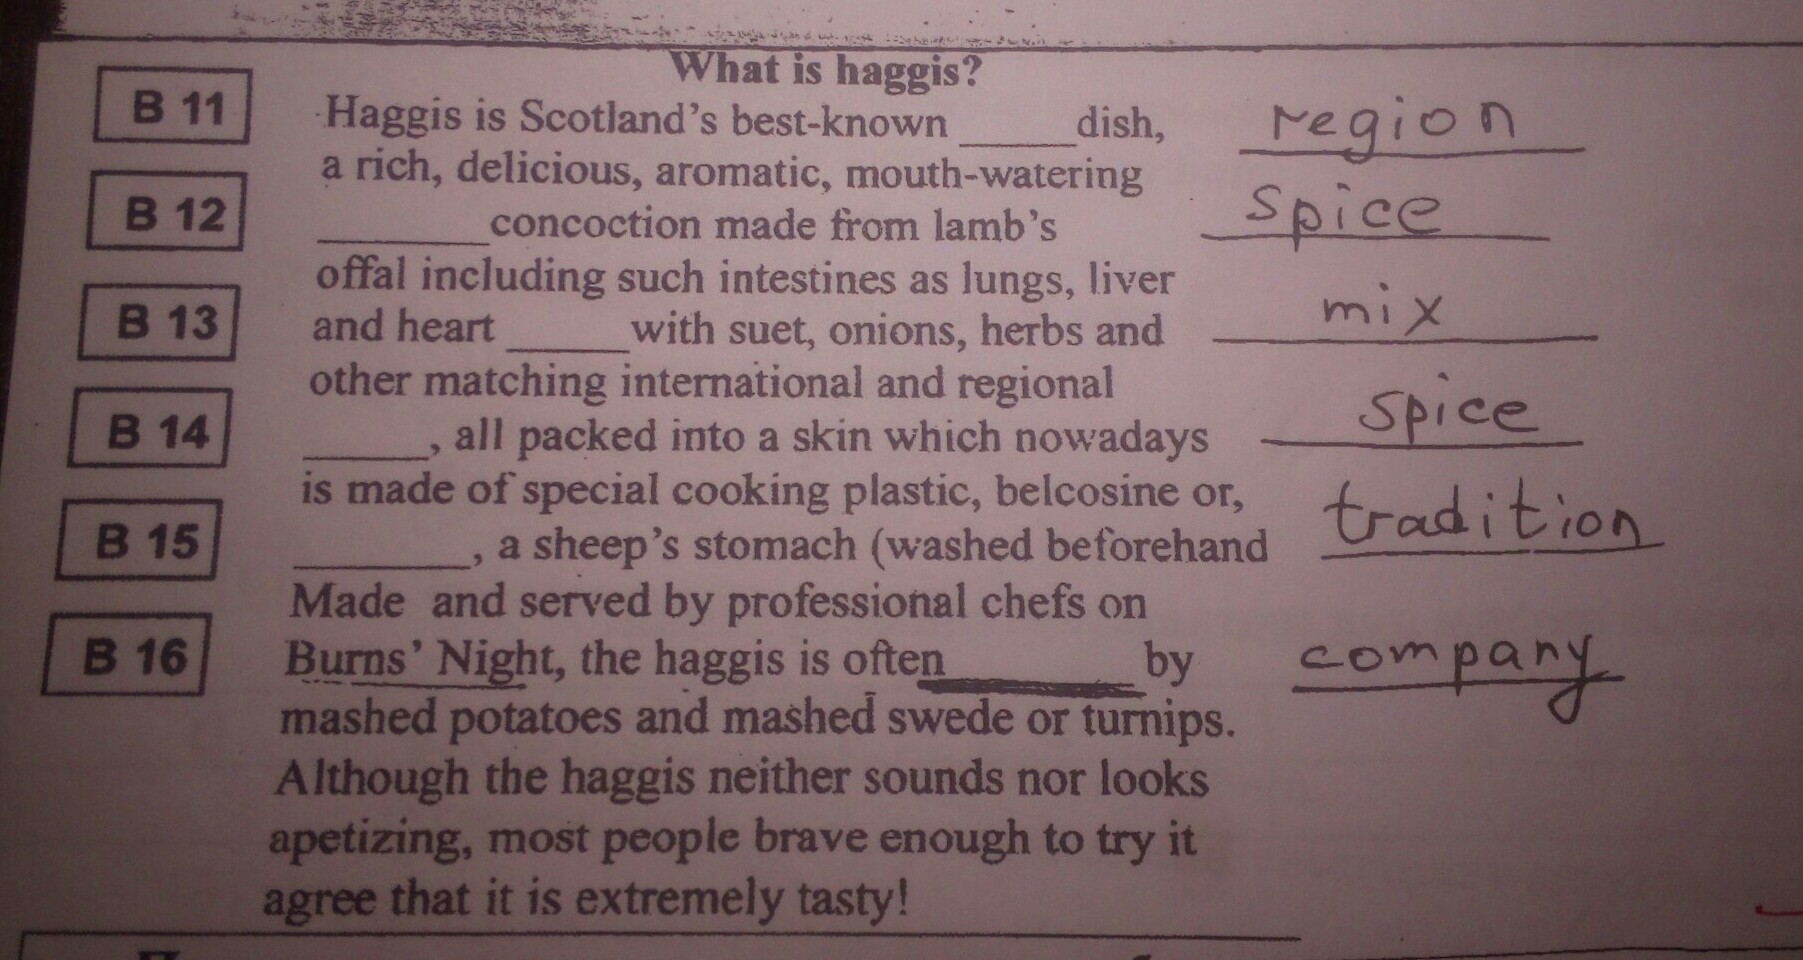 What is haggis?
B 11 Haggis is Scotland's best-known _____ dish, region
a rich, delicious, aromatic, mouth-watering
B 12 _______ concoction made from lamb's spice
offal including such intestines as lungs, liver
B 13 and heart _____ with suet, onions, herbs and mix
other matching international and regional
B 14 _____, all packed into a skin which nowadays spice
is made of special cooking plastic, belcosine or,
B 15 _______, a sheep's stomach (washed beforehand tradition
Made and served by professional chefs on
B 16 Burns' Night, the haggis is often ________ by company
mashed potatoes and mashed swede or turnips.
Although the haggis neither sounds nor looks
apetizing, most people brave enough to try it
agree that it is extremely tasty!